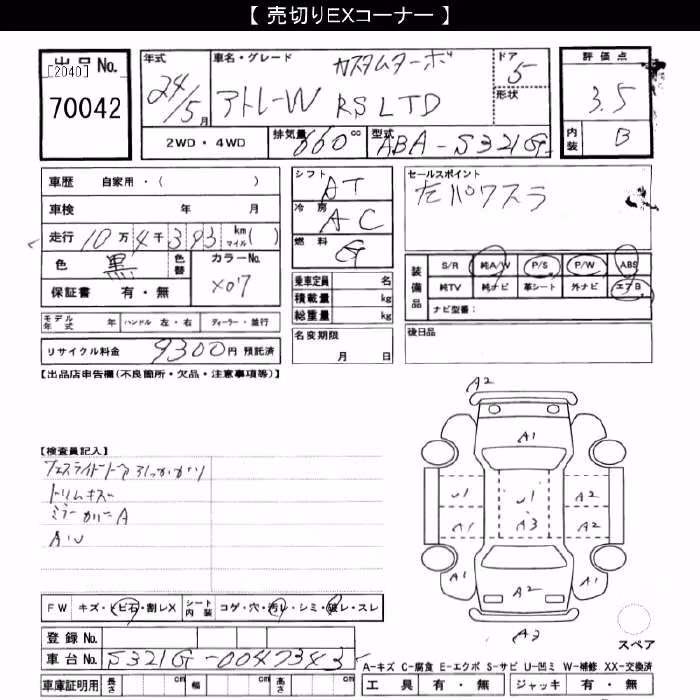 【 売切りEXコーナー 】
出品No.
[2040]
70042
年式
24/5月
車名・グレード
カスタムターボ
アトレーW RS LTD
ドア
5
形状
評価点
3.5
内装
B
2WD・4WD
排気量
660cc
型式
ABA-S321G
車歴 自家用・( )
車検 年 月
走行 10万4千393 km マイル( )
色 黒
色替
カラーNo.
X07
保証書 有・無
モデル年式 年 ハンドル 左・右 ディーラー・並行
リサイクル料金 9300円 預託済
シフト
AT
冷房
AC
燃料
G
乗車定員 名
積載量 kg
総重量 kg
名変期限
月 日
セールスポイント
左パワスラ
装備品
S/R 純A/V P/S P/W ABS
純TV 純ナビ 革シート 外ナビ エアB
ナビ型番:
後日品
【出品店申告欄(不良箇所・欠品・注意事項等)】
【検査員記入】
トリムキズ
ミラーカバーA
AU
FW キズ・トビ石・割レX
シート内装 コゲ・穴・汚レ・シミ・破レ・スレ
登録No.
車台No. S321G-0047343
車庫証明用 長さ cm 幅 cm 高さ cm
A2
A1
U1 U1 A2
A1 A3 A2
A1 A2 A1
A2
スペア
A-キズ C-腐食 E-エクボ S-サビ U-凹ミ W-補修 XX-交換済
工具 有・無 ジャッキ 有・無